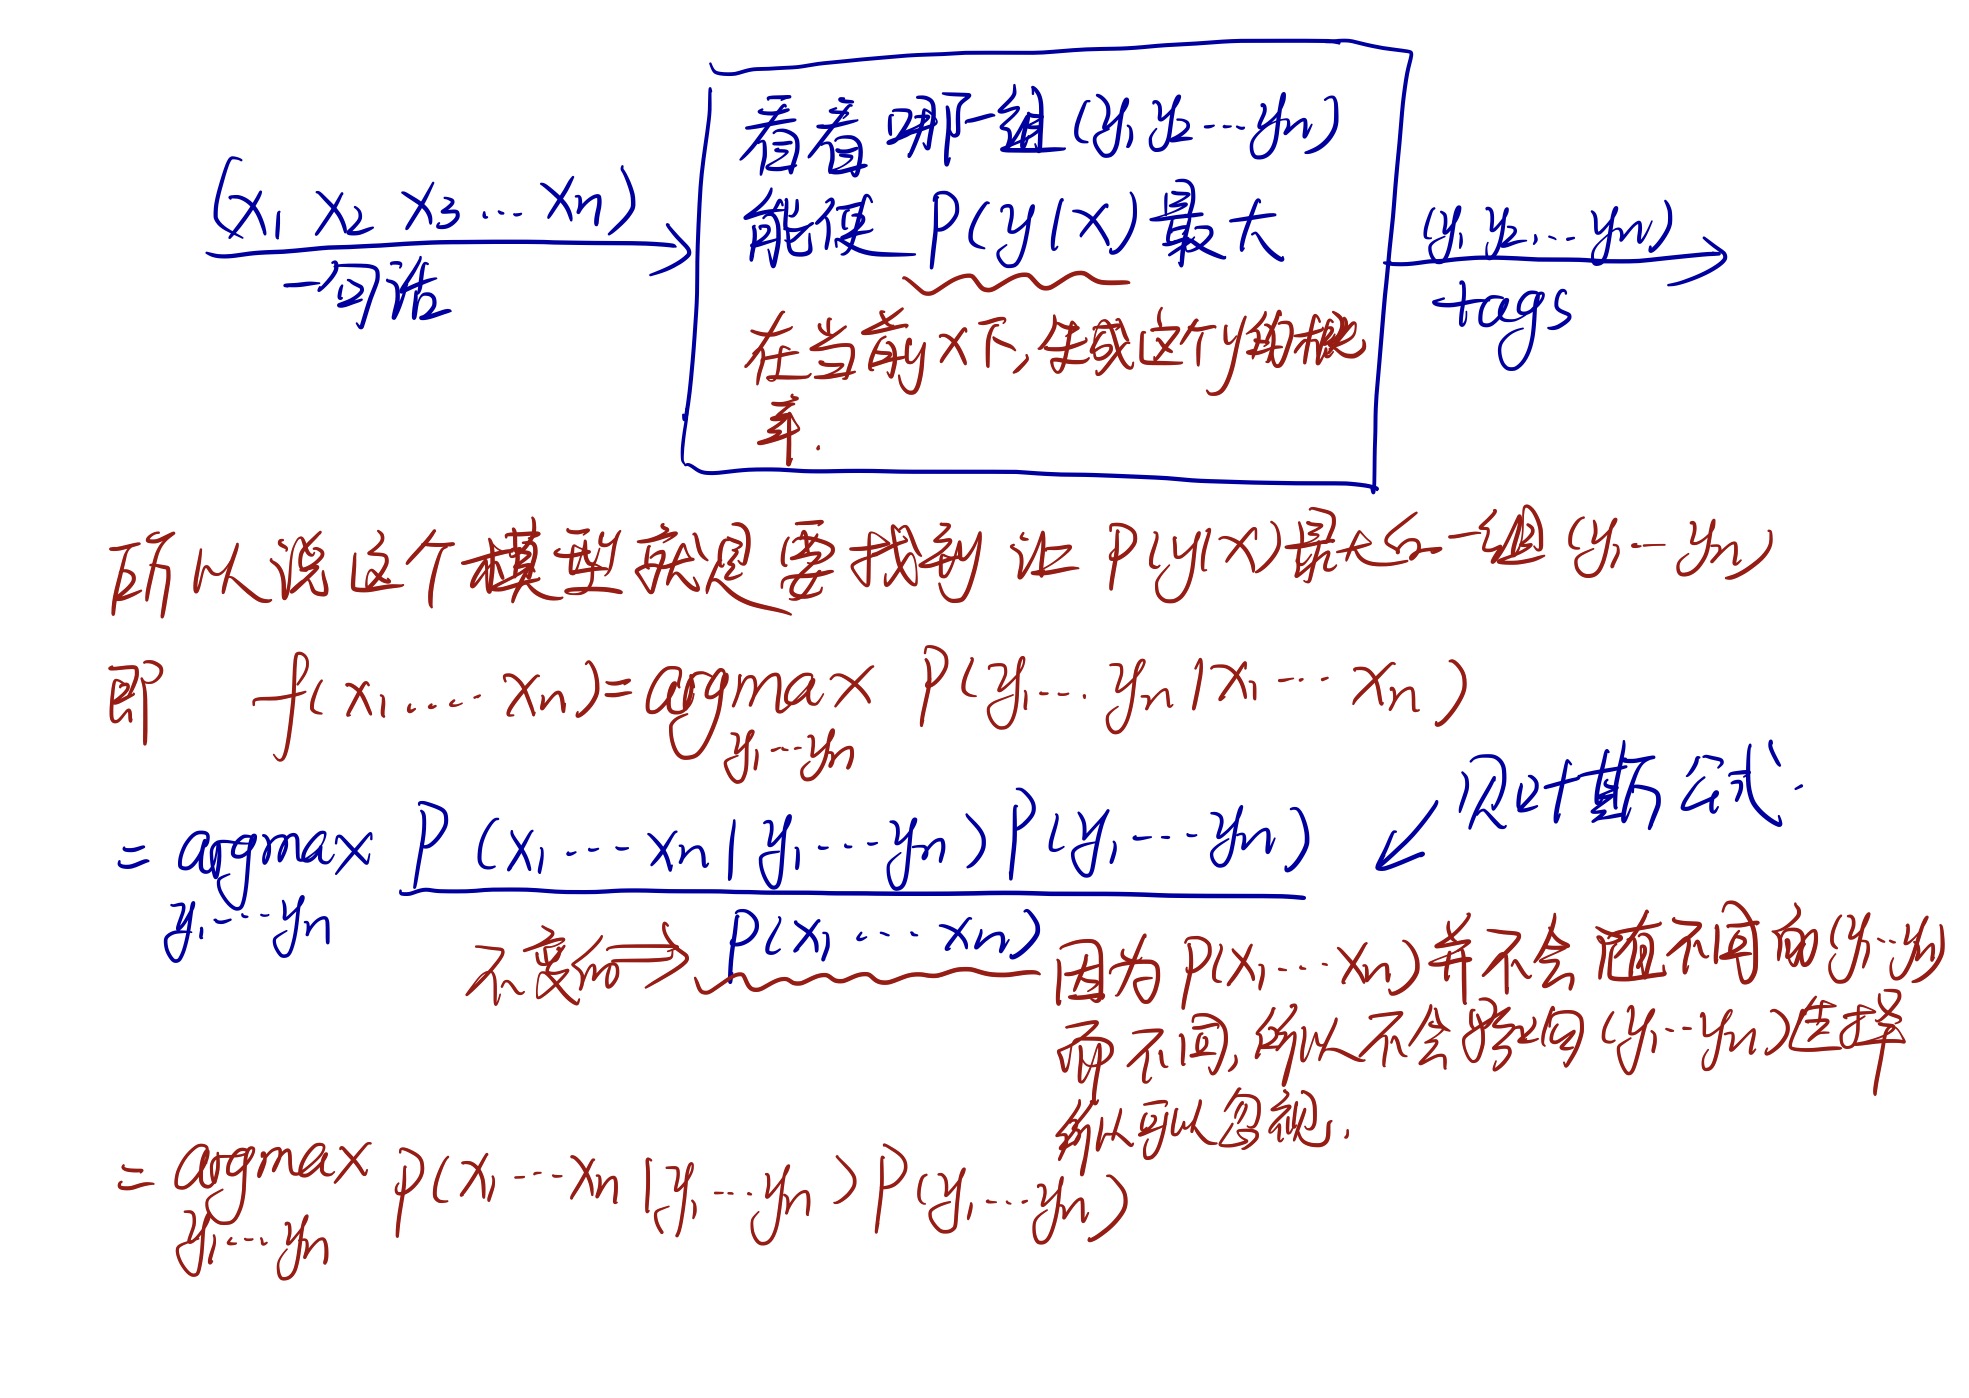 (x₁ x₂ x₃ … xₙ)
一句话
看看哪一组(y₁ y₂ … yₙ)
能使 P(y|x) 最大
在当前 x下,生成这个y的概
率.
(y₁ y₂, … yₙ)
tags
所以说这个模型就是要找到 让 P(y|x)最大的一组 (y₁ … yₙ)
即 f(x₁ … xₙ) = argmax P(y₁ … yₙ | x₁ … xₙ)
y₁ … yₙ
贝叶斯公式.
= argmax P(x₁ … xₙ | y₁ … yₙ) P(y₁ … yₙ)
y₁ … yₙ
不变的 → P(x₁ … xₙ)
因为 P(x₁ … xₙ) 并不会随不同的(y₁ … yₙ)
而不同,所以不会影响(y₁ … yₙ)选择
所以可以忽视.
= argmax P(x₁ … xₙ | y₁ … yₙ) P(y₁ … yₙ)
y₁ … yₙ